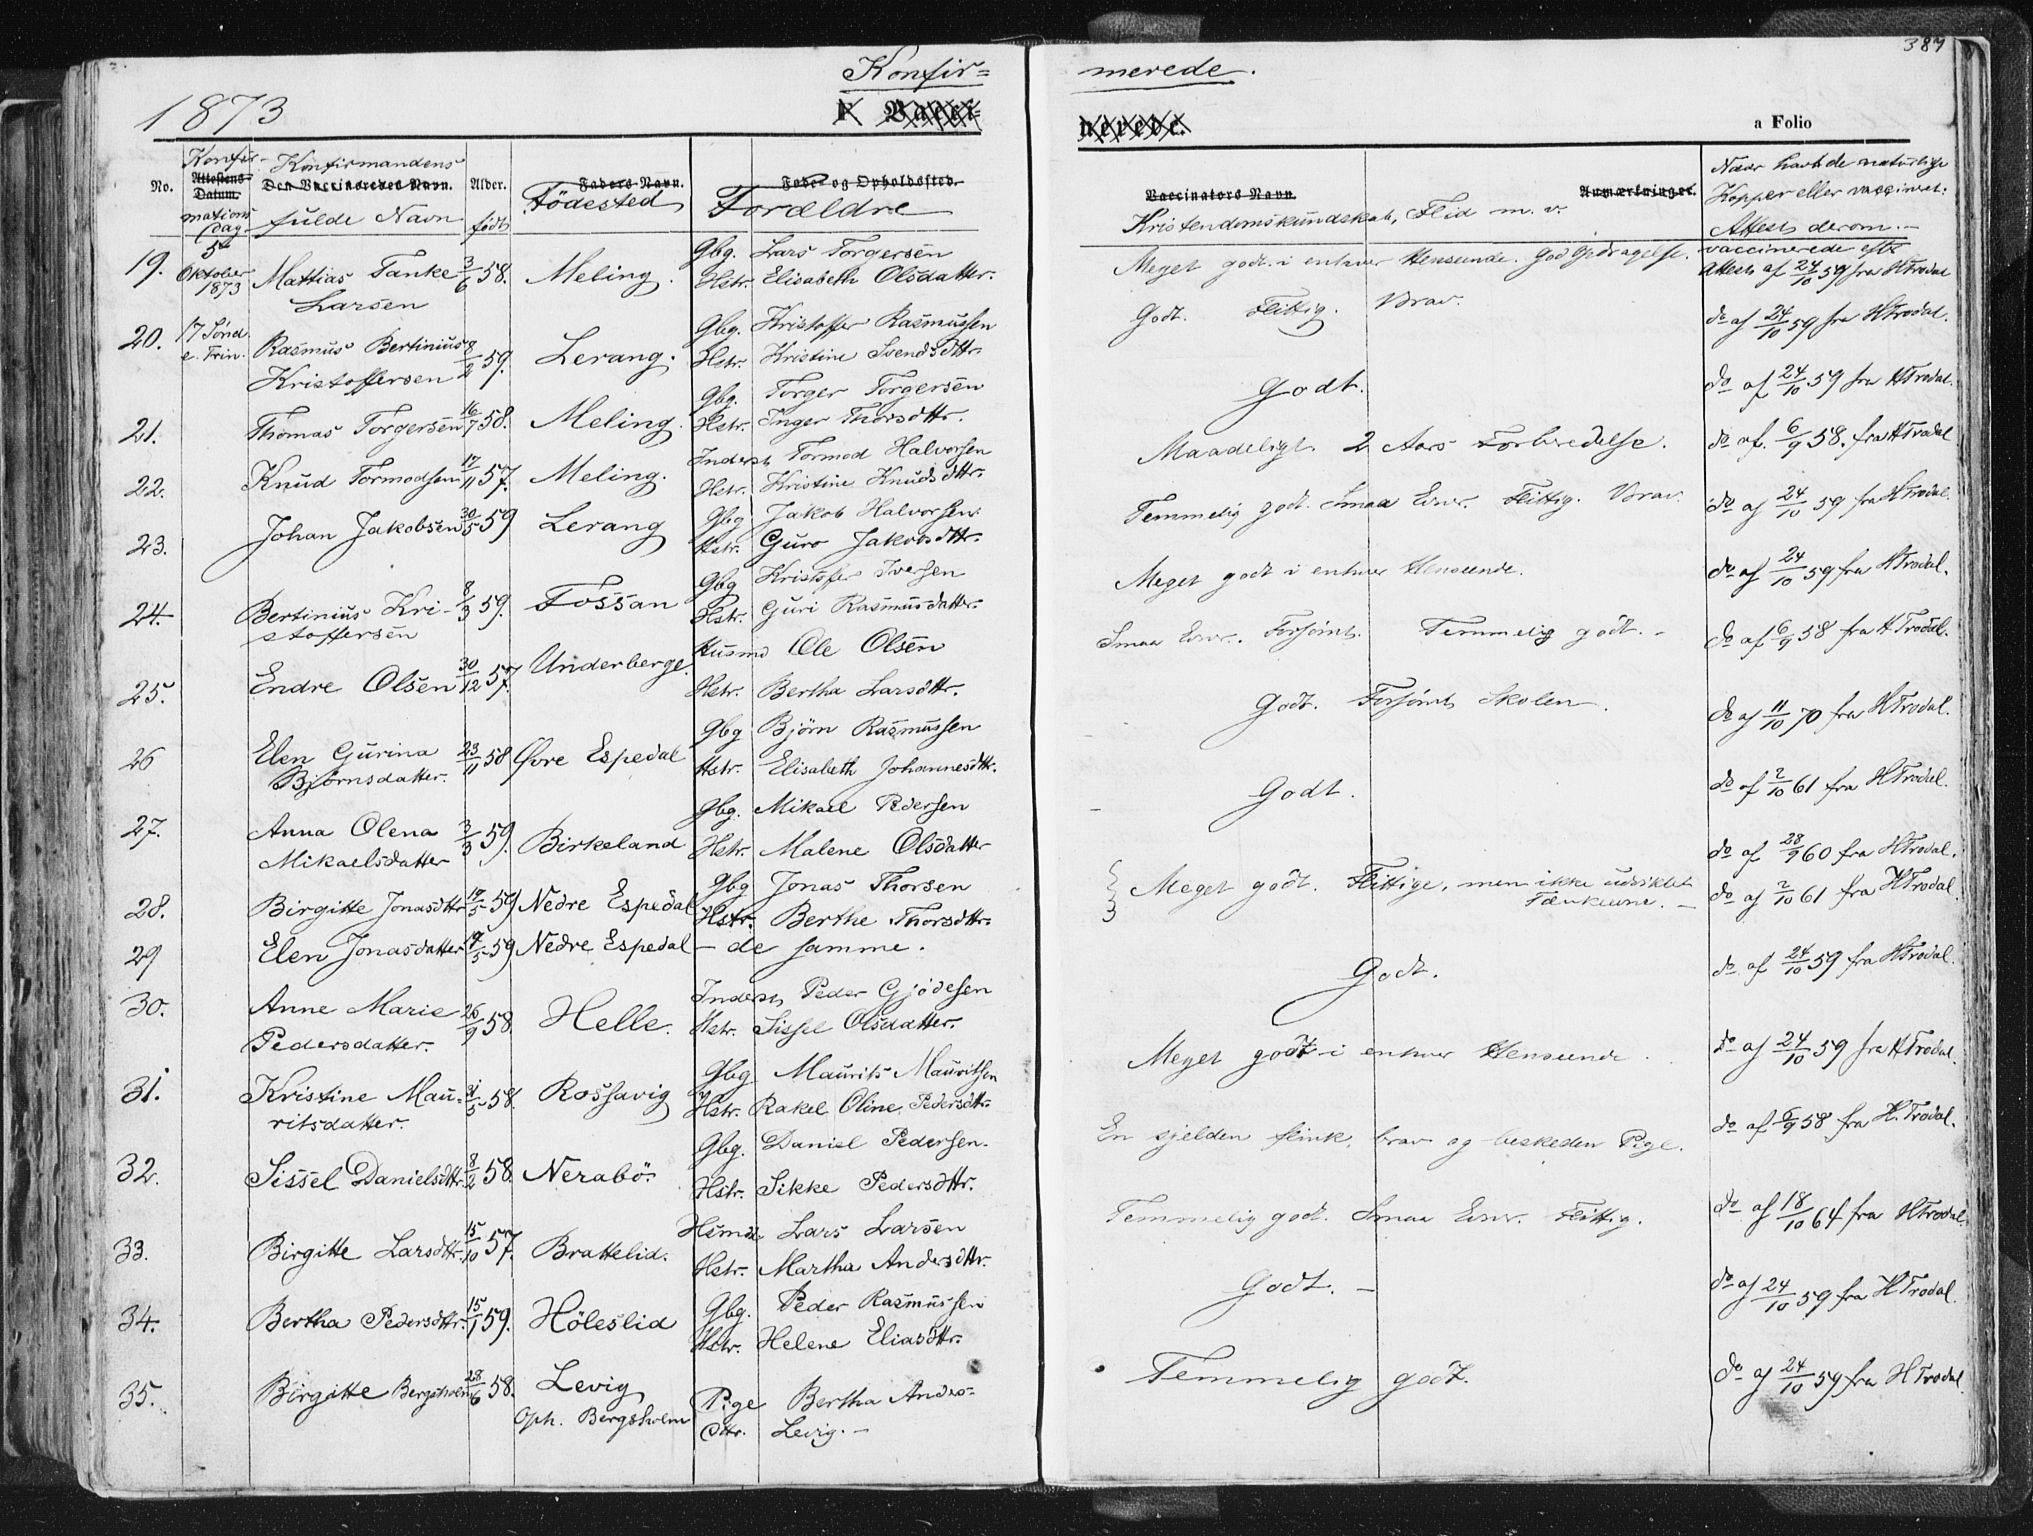 387
Konfir= merede.
1873
I Vacci= nerede.
a Folio
No. Attestens Datum. Den Vaccineredes Navn. Alder. Faders Navn. Føde- og Opholdssted. Vaccinators Navn. Anmærkninger.
Konfir-mations dag Konfirmandens fulde Navn født Födested Forældre Kristendomskundskab, Flid m. v. Naar havt de naturlige Kopper eller vaccineret. Attest derom.-
19. 5te Oktober 1873 Mattias Tanke Larsen 3/6 58. Meling. Gbg. Lars Torgersen Hstr. Elisabeth Olsdatter. Meget godt i enhver Henseende. God Opdragelse. vaccinerede eftr Attest af 24/10 59 fra H Trodal
20. 17 Sönd. e. Trin. Rasmus Bertinius Kristoffersen 8/2 59. Lerang. Gbg. Kristoffer Rasmussen Hstr. Kristine Svendsdttr. Godt. Flittig. Brav. do af 24/10 59 fra H Trodal.
21. Thomas Torgersen 16/7 58. Meling. Gbg. Torger Torgersen Hstr. Inger Thorsdttr. Godt. do af 24/10 59 fra H Trodal.
22. Knud Tormodsen 17/11 57. Meling. Inderst Tormod Halvorsen Hstr. Kristine Knudsdttr. Maadeligt 2 Aars Forberedelse. do af. 6/9 58. fra H Trodal
23. Johan Jakobsen 30/5 59 Lerang Gbg Jakob Halvorsen. Hstr. Guro Jakobsdttr. Temmelig godt. Smaa Evner. Flittig. Brav. do af 24/10 59 fra H Trodal.
24. Bertinius Kristoffersen 8/3 59. Fossan Gbg Kristofer Iversen Hstr. Guri Rasmusdatter. Meget godt i enhver Henseende. do af 24/10 59 fra H Trodal.
25. Endre Olsen 30/12 57. Underberge. Husmd Ole Olsen Hstr. Bertha Larsdttr. Smaa Evner. Forsömt. Temmelig godt. - do af 6/9 58 fra H Trodal.
26 Elen Gurina Björnsdatter. 23/11 58 Øvre Espedal Gbg Björn Rasmussen Hstr. Elisabeth Johannesdttr. Godt. Forsömt Skolen. do af 11/10 70 fra H Trodal.
27. Anna Olena Mikaelsdatter 3/3 59. Birkeland Gbg. Mikael Pedersen Hstr. Malene Olsdatter Godt. do af 2/10 61 fra H Trodal.
28. Birgitte Jonasdttr 19/5 59 Nedre Espedal Gbg Jonas Thorsen Hstr. Berthe Thorsdttr. Meget godt. Flittige, men ikke udviklet Tænkeevne. - do af 28/9 60 fra H Trodal.
29 Elen Jonasdatter 19/5 59 Nedre Espedal - de samme. do af 2/10 61 fra H Trodal
30. Anne Marie Pedersdatter. 26/9 58 Helle. Inderst Peder Gjödesen Hstr. Sissel Olsdatter. Godt. do af 24/10 59 fra H Trodal.
31. Kristine Mauritsdatter. 31/5 58. Rossavig Gbg Maurits Mauritsen Hstr. Rakel Oline Pedersdttr. Meget godt i enhver Henseende. do af 24/10 59 fra H Trodal.
32. Sissel Danielsdttr. 8/2 58. Nerabö. Gbg. Daniel Pedersen. Hstr. Sikke Pedersdttr. En sjelden flink, brav og beskeden Pige. do af 6/9 58 fra H. Trodal.
33. Birgitte Larsdttr. 15/10 57. Brattelid. Husmd Lars Larsen Hstr. Martha Andersdttr. Temmelig godt. Smaa Evner. Flittig. do af 18/10 64 fra H Trodal.
34. Bertha Pedersdttr. 15/1 59. Höleslid Gbg. Peder Rasmussen Hstr. Helene Eliasdttr. Godt. - do af 24/10 59 fra H Trodal.
35. Birgitte Bergsholm 28/6 58. Levig Oph. Bergsholm Pige Bertha Andersdttr. Levig. - Temmelig godt. do af 24/10 59 fra H Trodal.